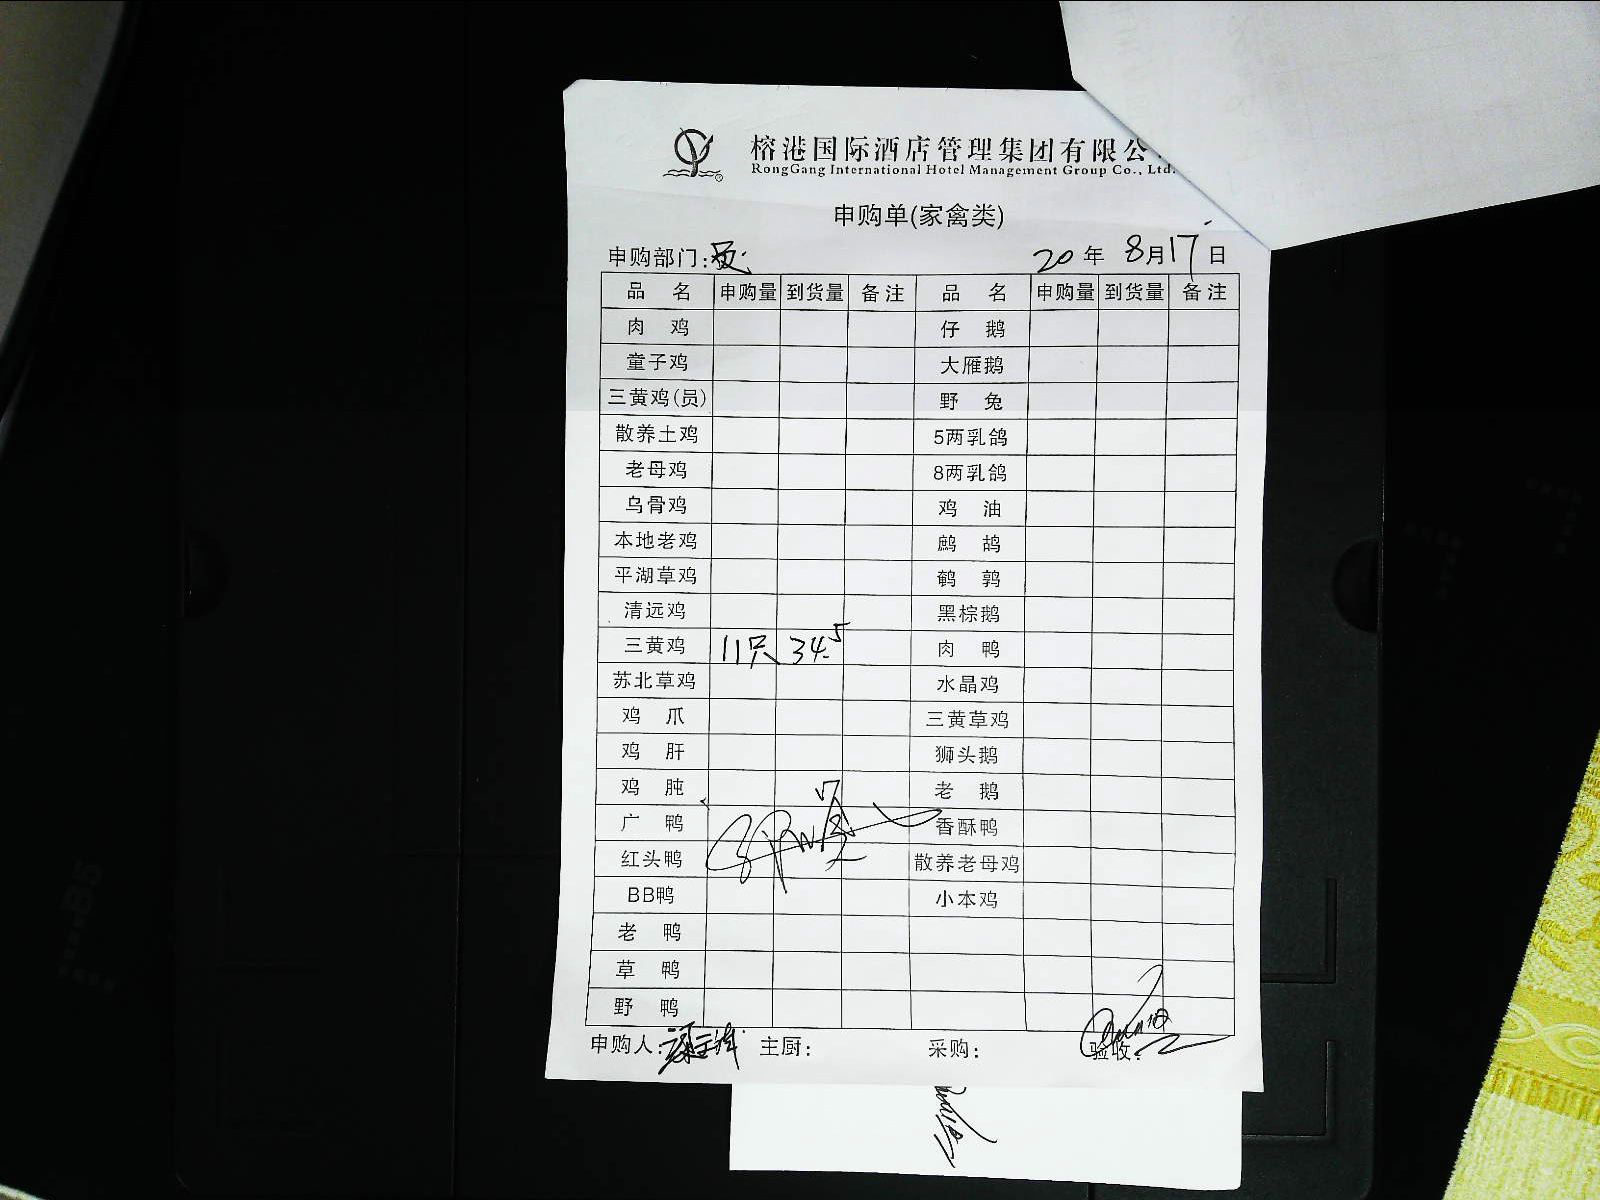 榕港国际酒店管理集团有限公
RongGang International Hotel Management Group Co., Ltd.
申购单(家禽类)
申购部门: 20年 8月17日
品 名 申购量 到货量 备注 品 名 申购量 到货量 备注
肉 鸡 仔 鹅
童子鸡 大雁鹅
三黄鸡(员) 野 兔
散养土鸡 5两乳鸽
老母鸡 8两乳鸽
乌骨鸡 鸡 油
本地老鸡 鹧 鸪
平湖草鸡 鹌 鹑
清远鸡 黑棕鹅
三黄鸡 11只 34.5 肉 鸭
苏北草鸡 水晶鸡
鸡 爪 三黄草鸡
鸡 肝 狮头鹅
鸡 肫 老 鹅
广 鸭 香酥鸭
红头鸭 散养老母鸡
BB鸭 小本鸡
老 鸭
草 鸭
野 鸭
申购人: 主厨: 采购: 验收: